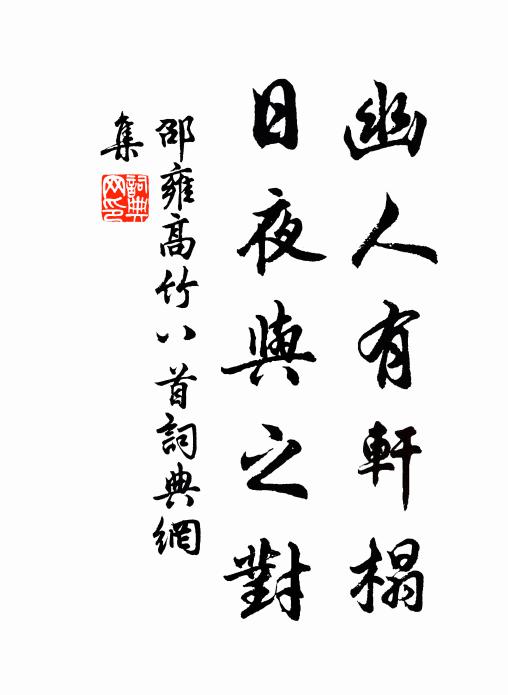 幽人有軒榻
日夜與之對
邵雍高竹八首詞典網
集
詞典网印